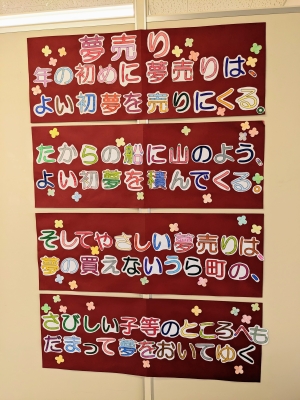 夢売り
年の初めに夢売りは、
よい初夢を売りにくる。
たからの船に山のよう、
よい初夢を積んでくる。
そしてやさしい夢売りは、
夢の買えないうら町の、
さびしい子等のところへも
だまって夢をおいてゆく